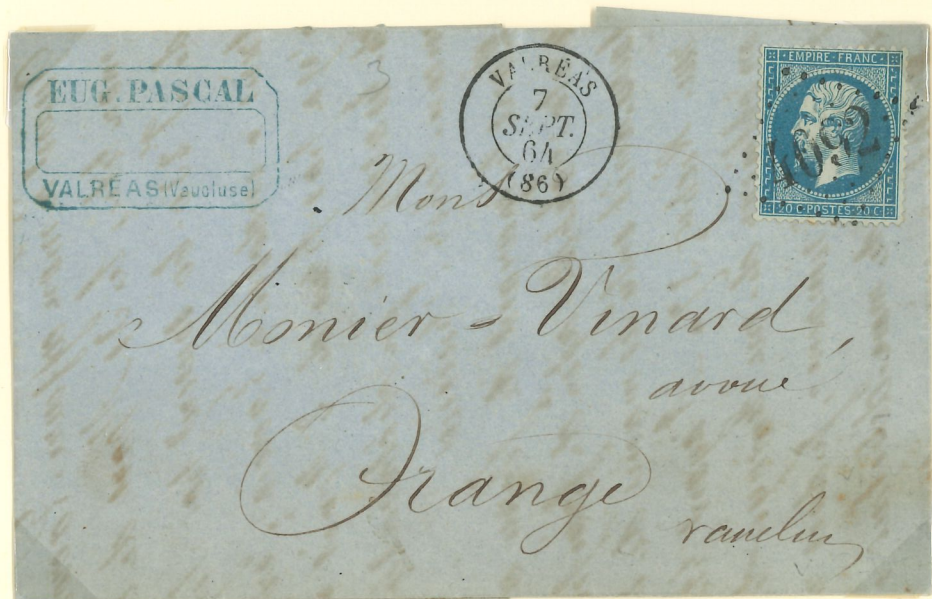 EUG. PASCAL
VALRÉAS (Vaucluse)
3
VALRÉAS
7
SEPT.
64
(86)
EMPIRE FRANC
4092
20 C POSTES 20 C
Mons
Monier = Vinard
avoué
Orange
vaucluse